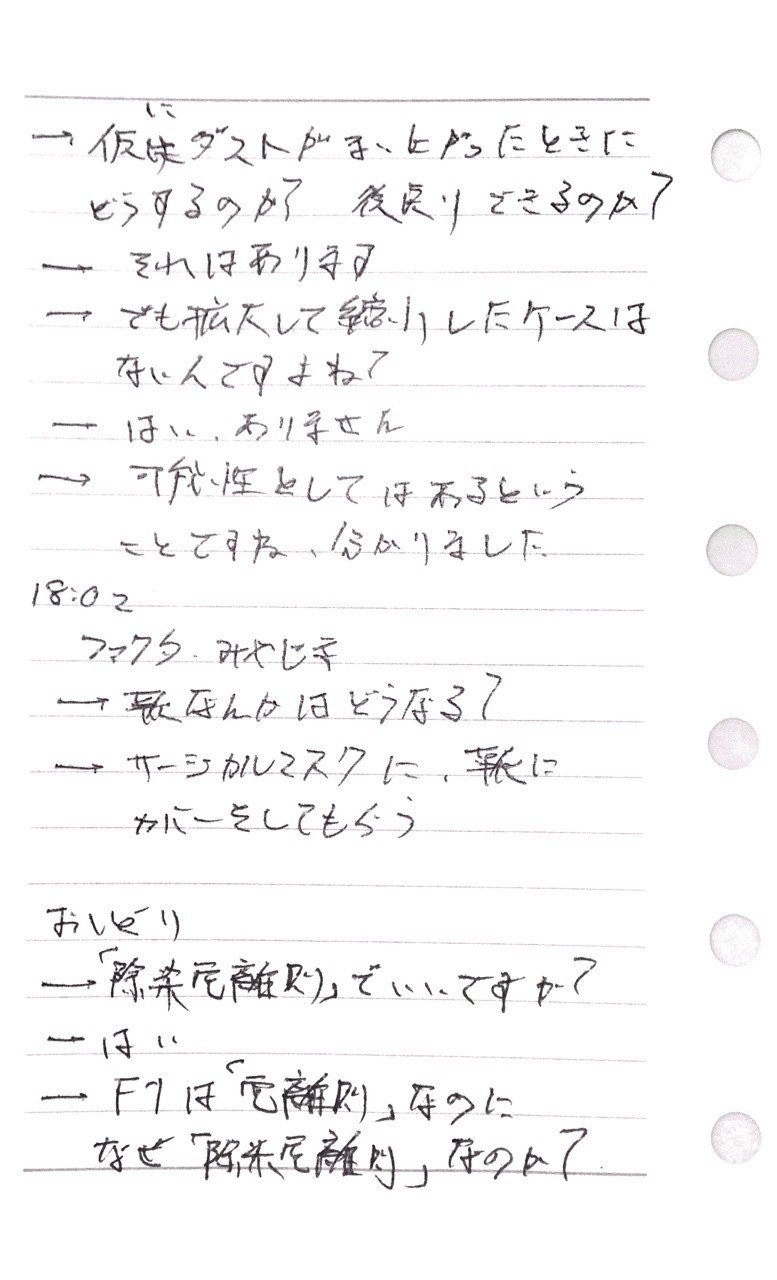 → 仮にダストがまい上がったときに
どうするのか? 後戻りできるのか?
→ それはあります
→ でも拡大して縮小したケースは
ないんですよね?
→ はい、ありません
→ 可能性としてはあるという
ことですね、分かりました
18:02
ファクタ みやじま
→ 靴なんかはどうなる?
→ サージカルマスクに、靴に
カバーをしてもらう
おしどり
→「除染電離則」でいいですか?
→ はい
→ F1は「電離則」なのに
なぜ「除染電離則」なのか?